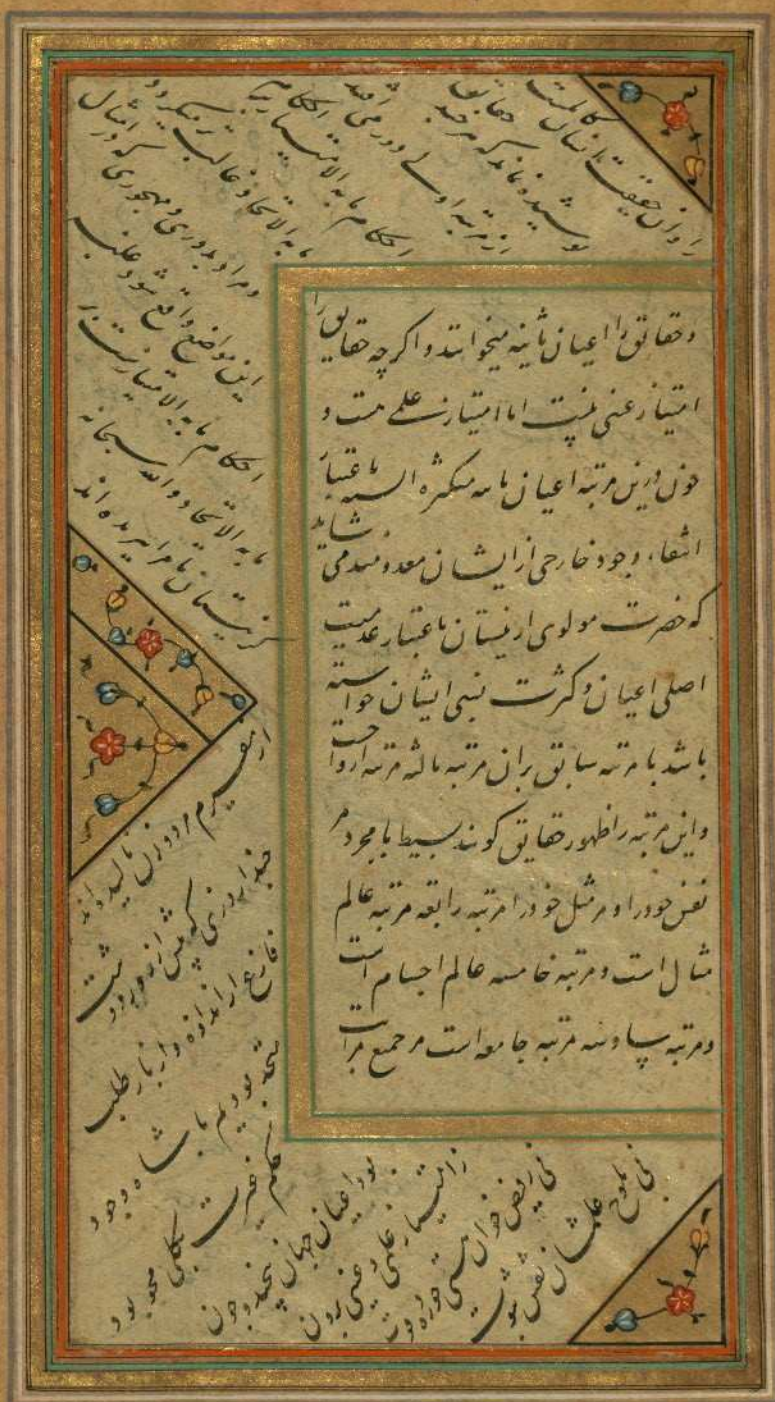 را و ان حقیقت انسان کاملست
پوشیده نماند که هر چند حقایق
از مرتبه اولی دورتر می افتد
احکام مابه الامتیاز بر
مابه الاتحاد غالب تر میگردد
و مراد بدوری و مهجوری که در امثال
این مواضع واقع شود غلبه
احکام مابه الامتیاز است بر
مابه الاتحاد والله سبحانه
کز نیستان تا مرا ببریده اند
و حقائق را اعیان ثابته میخوانند و اگرچه حقایق را
امتیاز عینی نیست اما امتیاز علمی هست و
چون درین مرتبه اعیان ثابته متکثره باعتبار
انتفاء وجود خارجی از ایشان معدومند می شاید
که حضرت مولوی از نیستان باعتبار عدمیت
اصلی اعیان و کثرت نسبی ایشان خواسته
باشد یا مرتبه سابق بران مرتبه ثالثه مرتبه ارواحست
و این مرتبه را ظهور حقایق گویند بسیط یا مجرد مر
نفس خود را و مر مثل خود را مرتبه رابعه مرتبه عالم
مثال است و مرتبه خامسه عالم اجسام است
و مرتبه سادسه مرتبه جامعه است مر جمیع مراتب
از نفیرم مرد و زن نالیده اند
حبذا روزی که پیش از روز و شب
فارغ از اندوه و از بار طلب
متحد بودیم با شاه وجود
حکم غیریت بکلی محو بود
بود اعیان جهان بی چند و چون
ز امتیاز علمی و عینی برون
نی بلوح علمشان نقش ثبوت
نی ز فیض خوان هستی خورده قوت